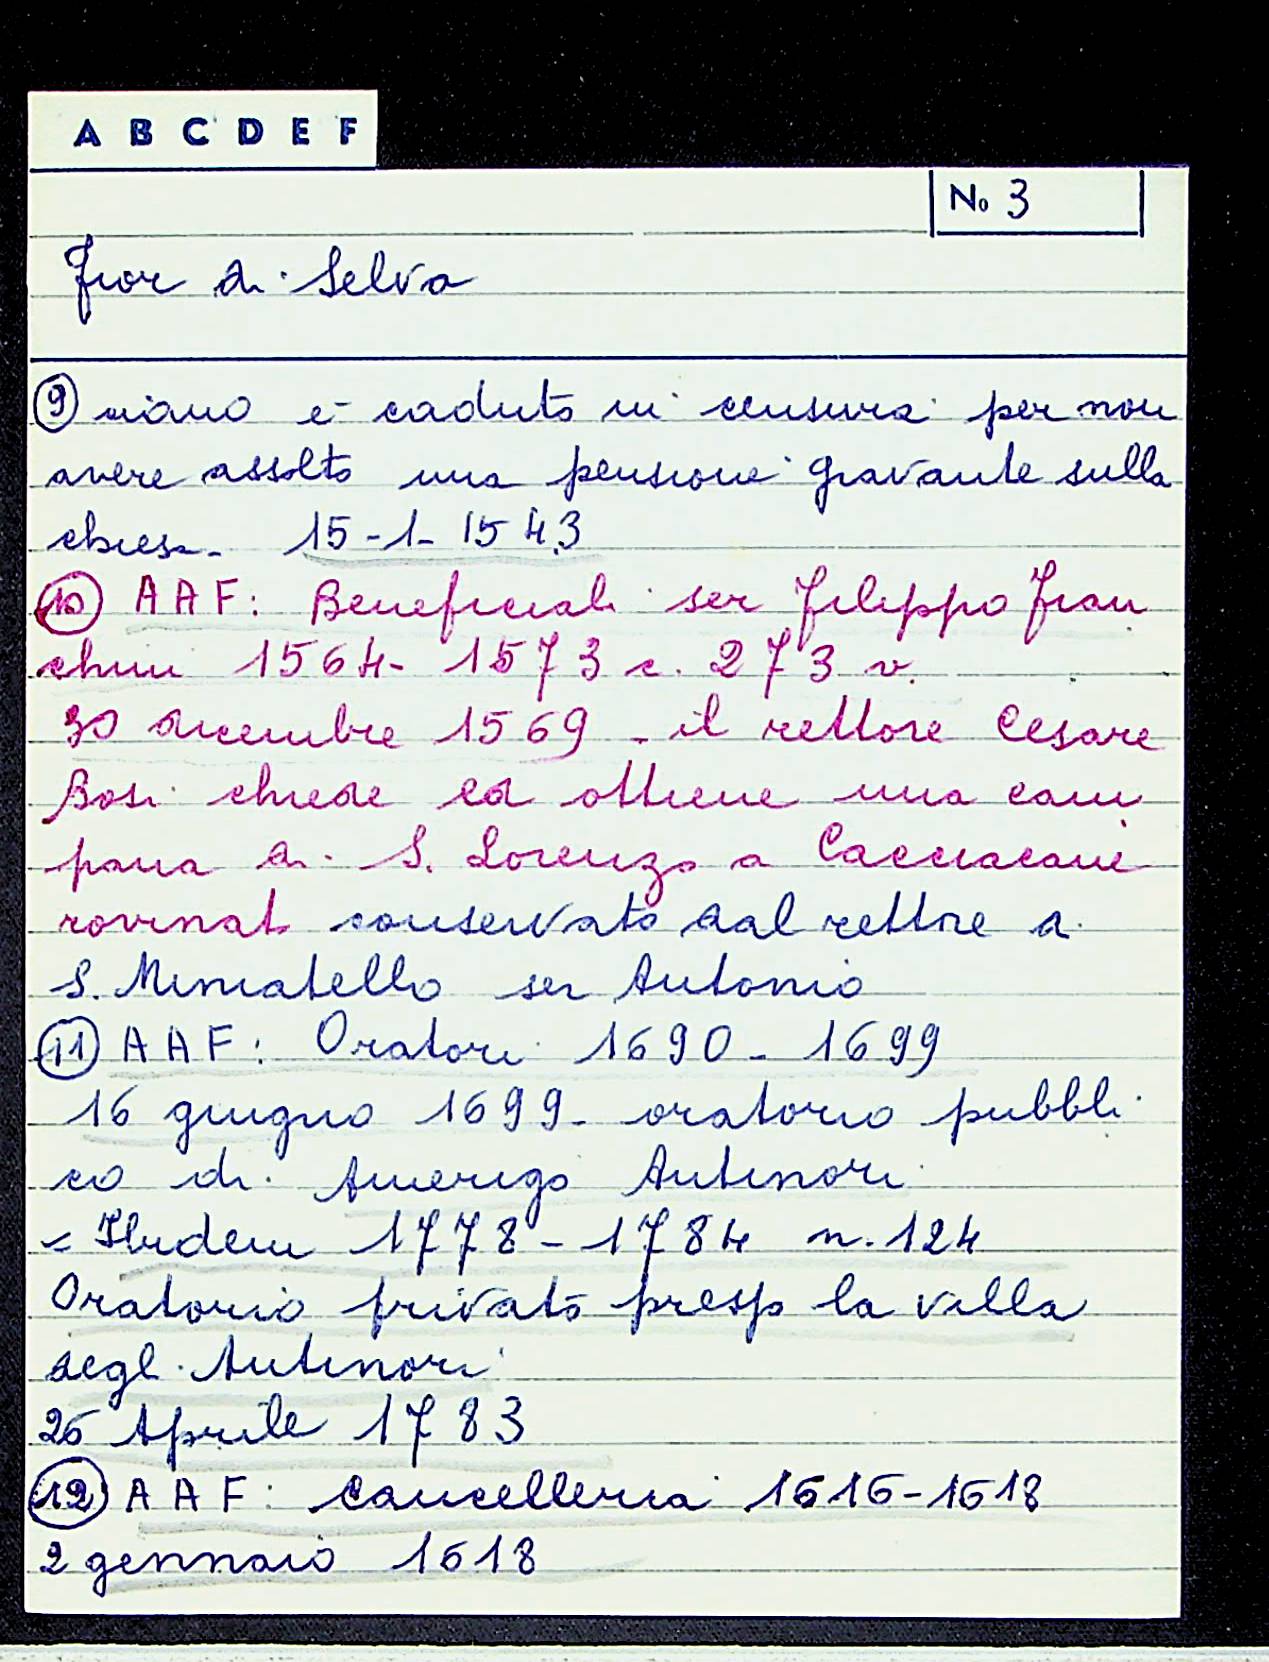 A B C D E F
No 3
Fior di Selva
9 viano è caduto in censura per non
avere assolto una pensione gravante sulla
chiesa - 15-1-1543
10 AAF: Beneficiali ser Filippo Fran
chini 1564-1573 c. 273 v.
30 dicembre 1569 - il rettore Cesare
Bosi chiede ed ottiene una cam
pana di S. Lorenzo a Cacciacane
rovinat. conservato dal rettore a
S. Miniatello ser Antonio
11 AAF: Oratori 1690-1699
16 giugno 1699- oratorio pubbli
co di Amerigo Antinori
= Ibidem 1778-1784 n. 124
Oratorio privato presso la villa
degli Antinori
26 Aprile 1783
12 AAF: Cancelleria 1616-1618
2 gennaio 1618